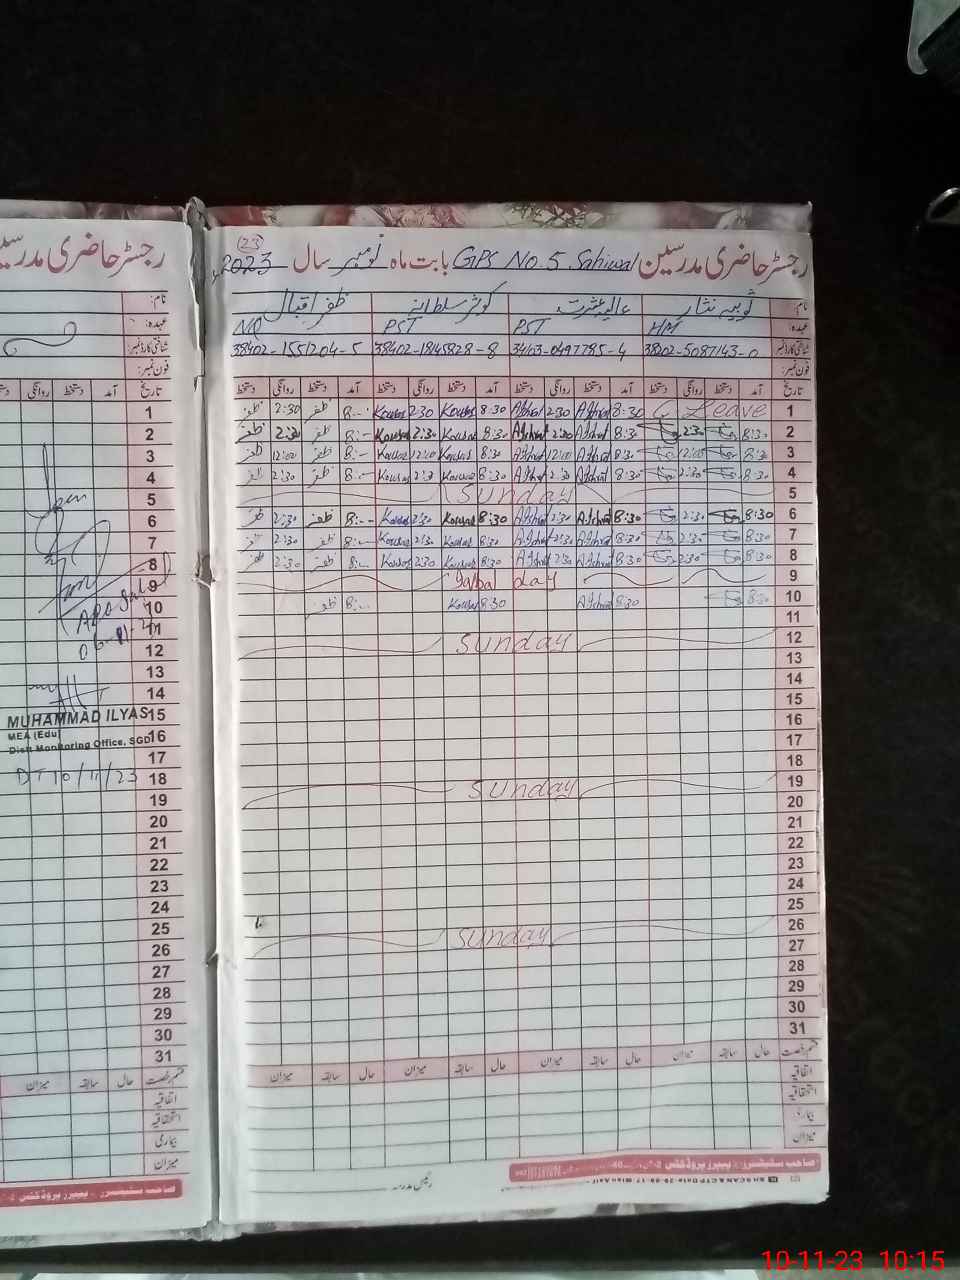 رجسٹر حاضری مدرسین GPS No. 5 Sahiwal بابت ماہ نومبر سال 2023
(23)
نام: ثوبیہ نثار عالیہ عشرت کوثر سلطانہ ظفر اقبال
عہدہ: HM PST PST NQ
شناختی کارڈ نمبر: 38202-5087143-0 34103-0497785-4 38402-18145828-8 38402-1551204-5
فون نمبر:
تاریخ آمد دستخط روانگی دستخط آمد دستخط روانگی دستخط آمد دستخط روانگی دستخط آمد دستخط روانگی دستخط
1 Leave 8:30 Ashrat 2:30 Ashrat 8:30 Kousar 2:30 Kousar 8:-- ظفر 2:30 ظفر
2 8:30 2:30 8:30 Ashrat 2:30 Ashrat 8:30 Kousar 2:30 Kousar 8:-- ظفر 2:30 ظفر
3 8:30 12:00 8:30 Ashrat 12:00 Ashrat 8:30 Kousar 12:00 Kousar 8:-- ظفر 12:00 ظفر
4 8:30 2:30 8:30 Ashrat 2:30 Ashrat 8:30 Kousar 2:30 Kousar 8:-- ظفر 2:30 ظفر
5 Sunday
6 8:30 2:30 8:30 Ashrat 2:30 Ashrat 8:30 Kousar 2:30 Kousar 8:-- ظفر 2:30 ظفر
7 8:30 2:30 8:30 Ashrat 2:30 Ashrat 8:30 Kousar 2:30 Kousar 8:-- ظفر 2:30 ظفر
8 8:30 2:30 8:30 Ashrat 2:30 Ashrat 8:30 Kousar 2:30 Kousar 8:-- ظفر 2:30 ظفر
9 Iqbal day
10 8:30 8:30 Ashrat 8:30 Kousar 8:-- ظفر
11
12 Sunday
13
14
15
16
17
18
19 Sunday
20
21
22
23
24
25
26 Sunday
27
28
29
30
31
قسم رخصت حال سابقہ میزان حال سابقہ میزان حال سابقہ میزان حال سابقہ میزان
اتفاقیہ
استحقاقیہ
بیماری
میزان
صاحب سٹیشنرز پیپرز پروڈکٹس
رئیس مدرسہ
رجسٹر حاضری مدرسین
نام:
عہدہ:
شناختی کارڈ نمبر:
فون نمبر:
تاریخ آمد دستخط روانگی
1
2
3
4
5
6
7
8
9
10
11
12
13
14
15
16
17
18
19
20
21
22
23
24
25
26
27
28
29
30
31
MUHAMMAD ILYAS
MEA (Edu)
Distt Monitoring Office, SGD
DT 10/11/23
قسم رخصت حال سابقہ میزان
اتفاقیہ
استحقاقیہ
بیماری
میزان
صاحب سٹیشنرز پیپرز پروڈکٹس
10-11-23 10:15